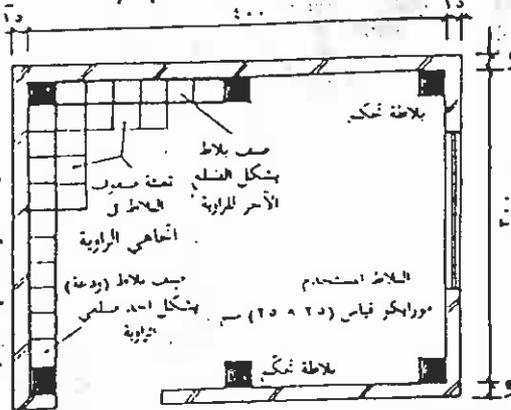 ١٥
٤٠٠
١٥
بلاطة تحكم
صف بلاط
بشكل الضلع
الآخر للزاوية
تعبئة صفوف
البلاط في
اتجاهي الزاوية
صف بلاط (ودعة)
بشكل احد ضلعي
الزاوية
البلاط المستخدم
موزايكو قياس (٢٥ × ٢٥) سم
بلاطة تحكم
٣٠٠